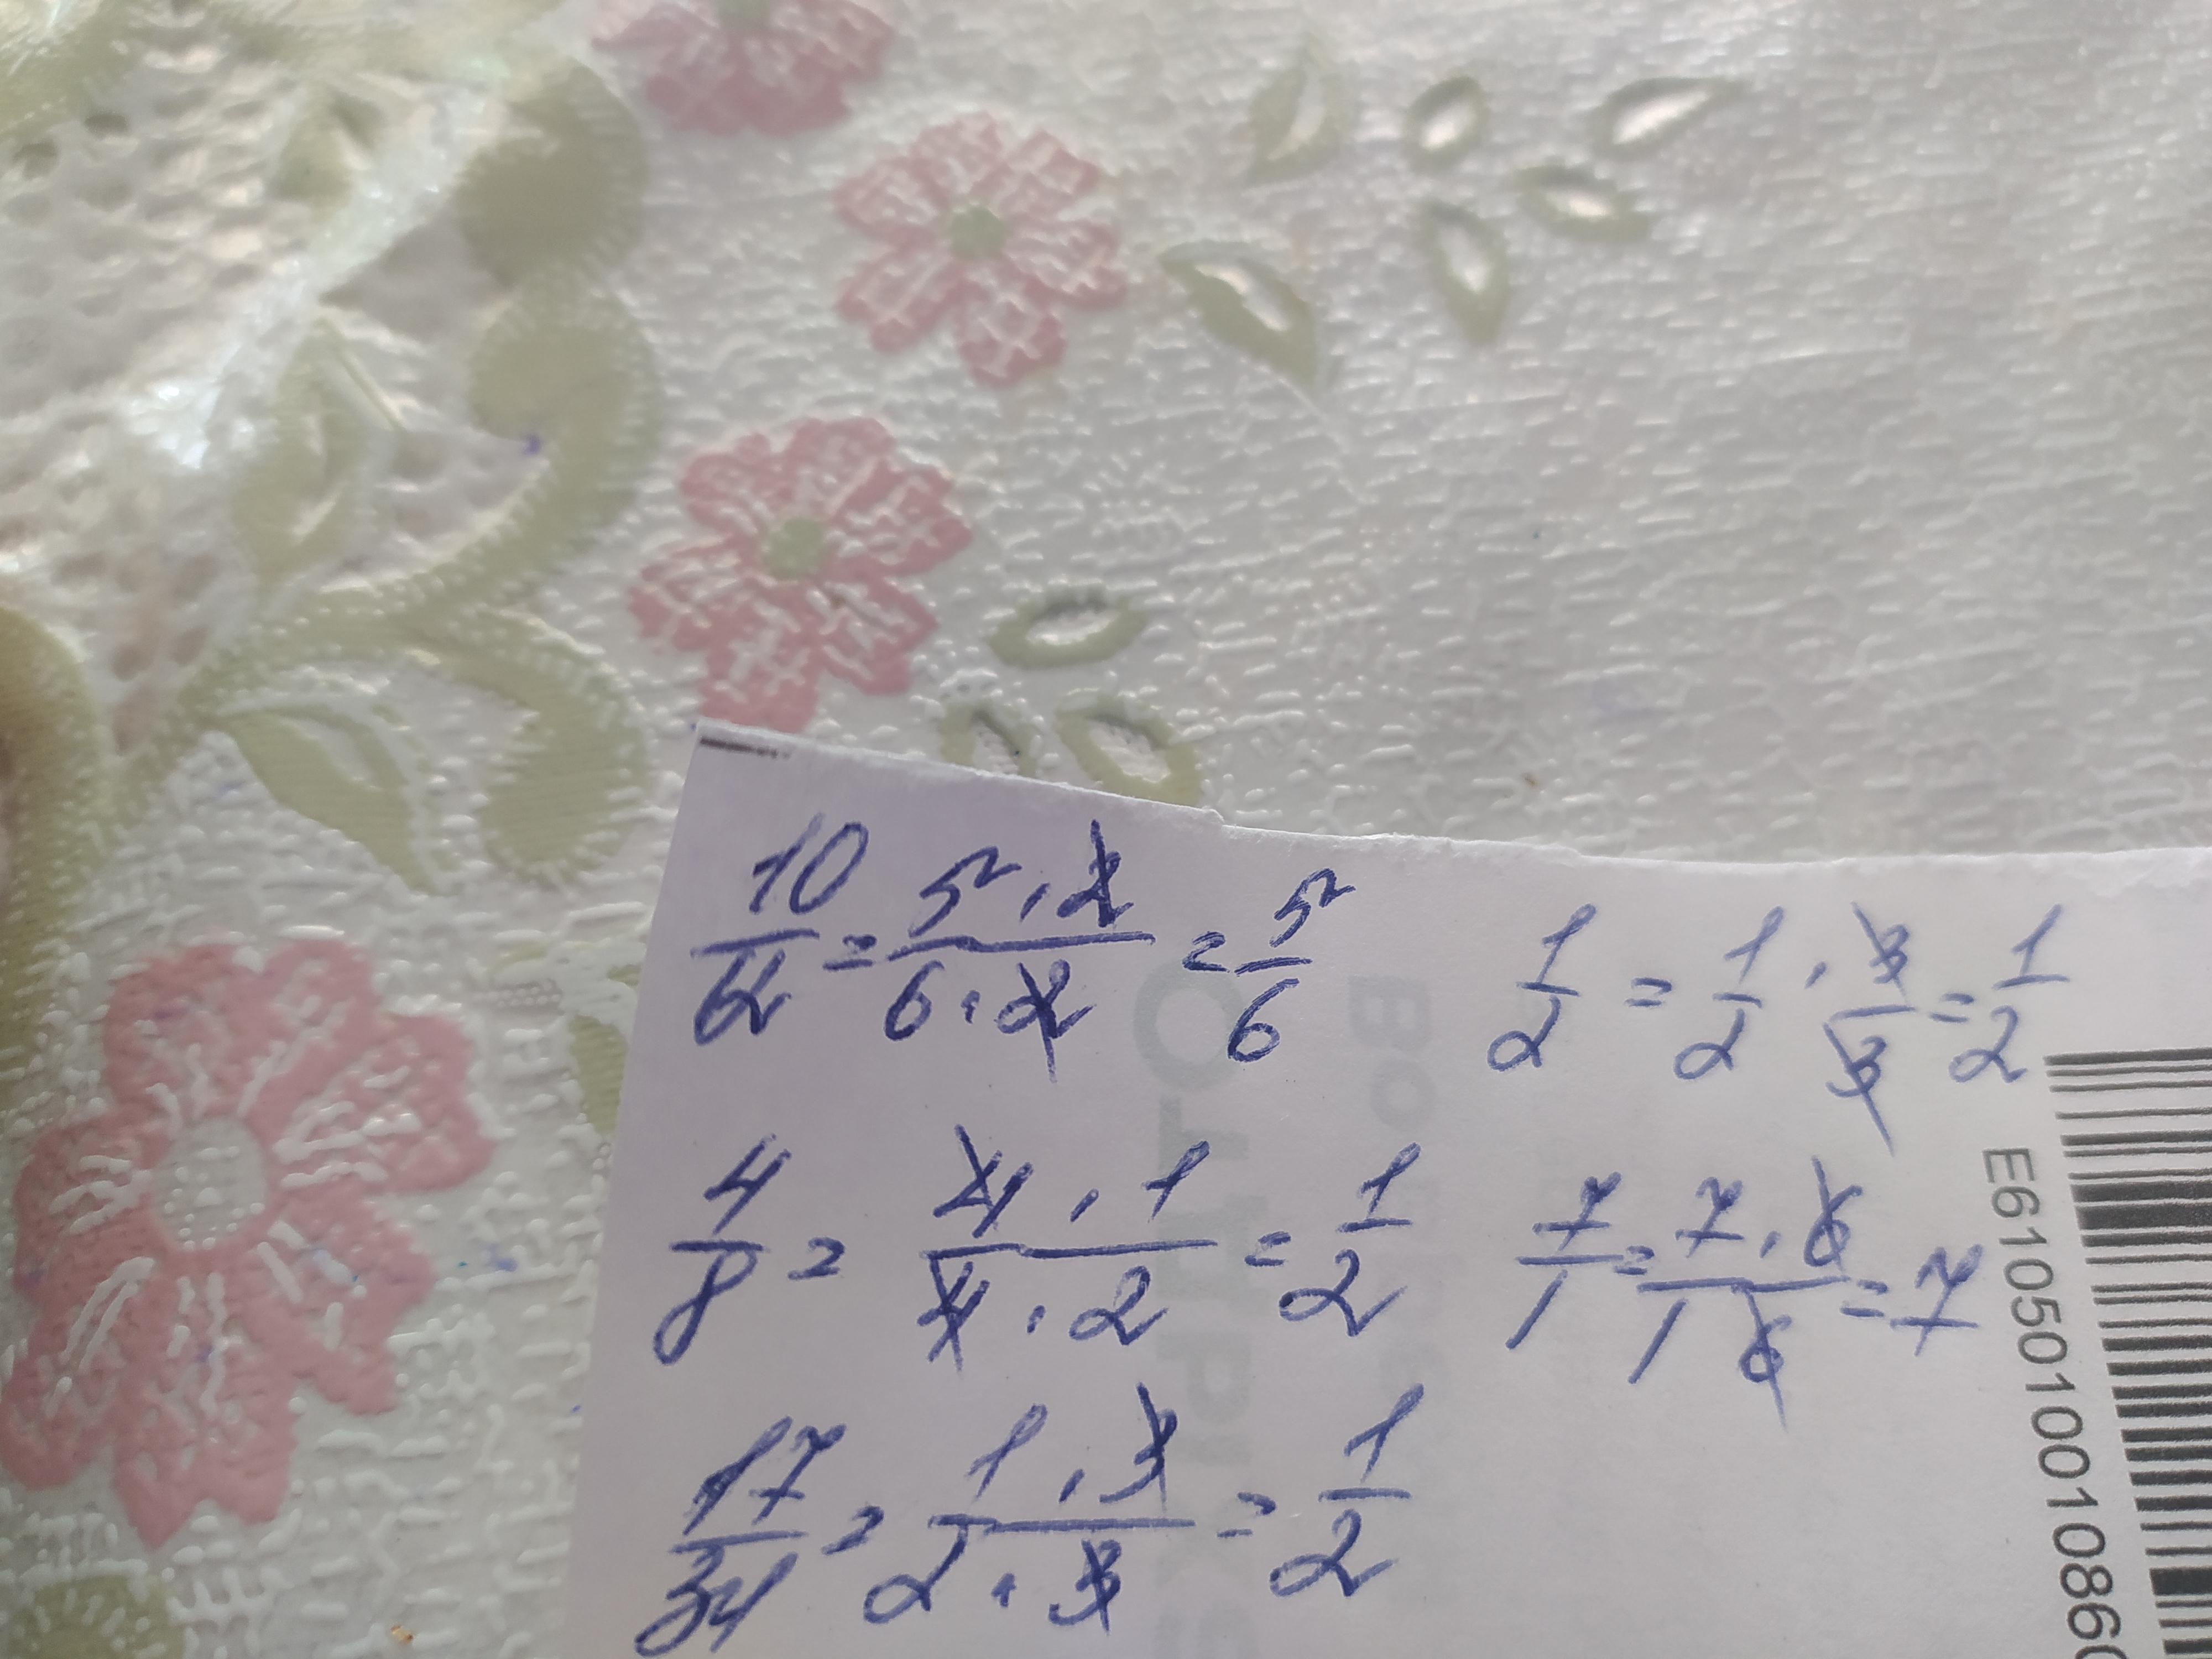 10/12 = 5·2/6·2 = 5/6
1/2 = 1/2 · 3/3 = 1/2
4/8 = 4·1/4·2 = 1/2
7/1 = 7·6/1 6 = 7
17/34 = 1·3/2·3 = 1/2
E6105010010860